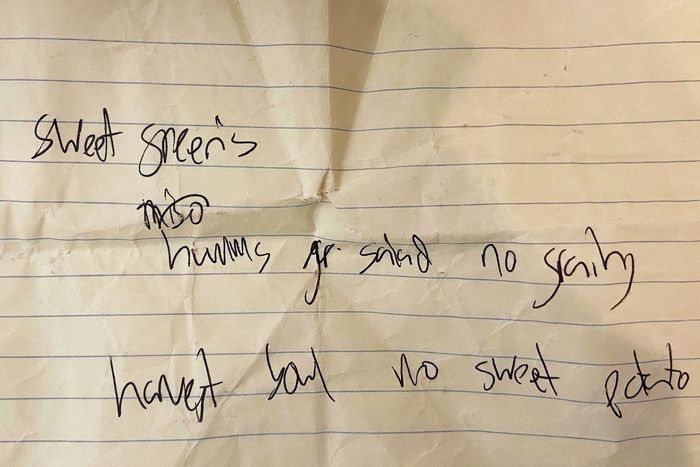 sweet green's
miso
hummus gr. salad no grains
harvest bowl no sweet potato